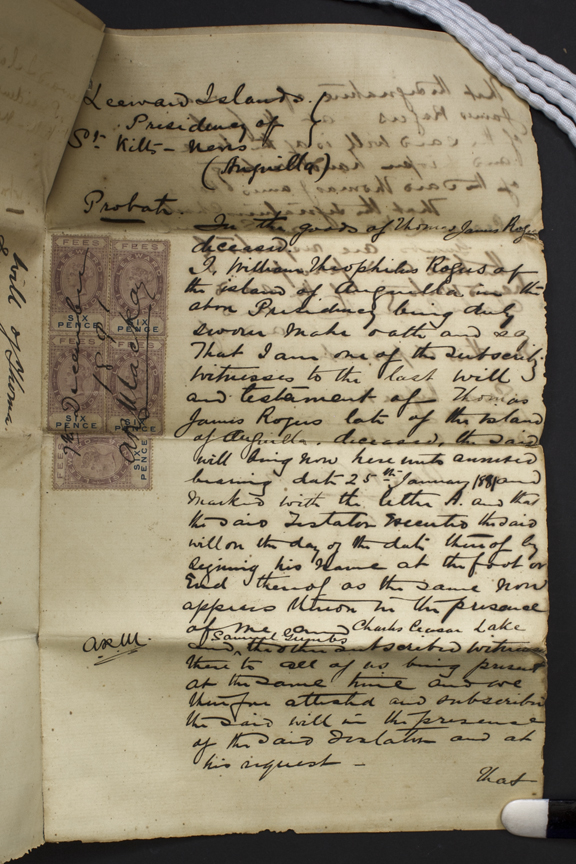 Leeward Islands.
Presidency of
St. Kitts - Nevis
(Anguilla)
Probate.
In the goods of Thomas James Rogers
deceased
I, William Theophilus Rogers of
the island of Anguilla in the
above Presidency being duly
sworn make oath and say
That I am one of the subscrib
witnesses to the last will
and testament of Thomas
James Rogers late of the Island
of Anguilla, deceased, the said
will being now here unto annexed
bearing date 25th January and
marked with the letter A and that
the said Testator executed the said
will on the day of the date thereof by
signing his name at the foot or
End thereof as the same now
appears thereon in the presence
of me and Charles Ceasar Lake
Samuel
and, the other subscribed witness
there to all of us being present
at the same time and we
therefore attested and subscribed
the said will in the presence
of the said Testator and at
his request -
That
FEES
FEES
SIX PENCE
SIX PENCE
FEES
FEES
SIX PENCE
SIX PENCE
FEES
SIX PENCE
December
will of Thomas